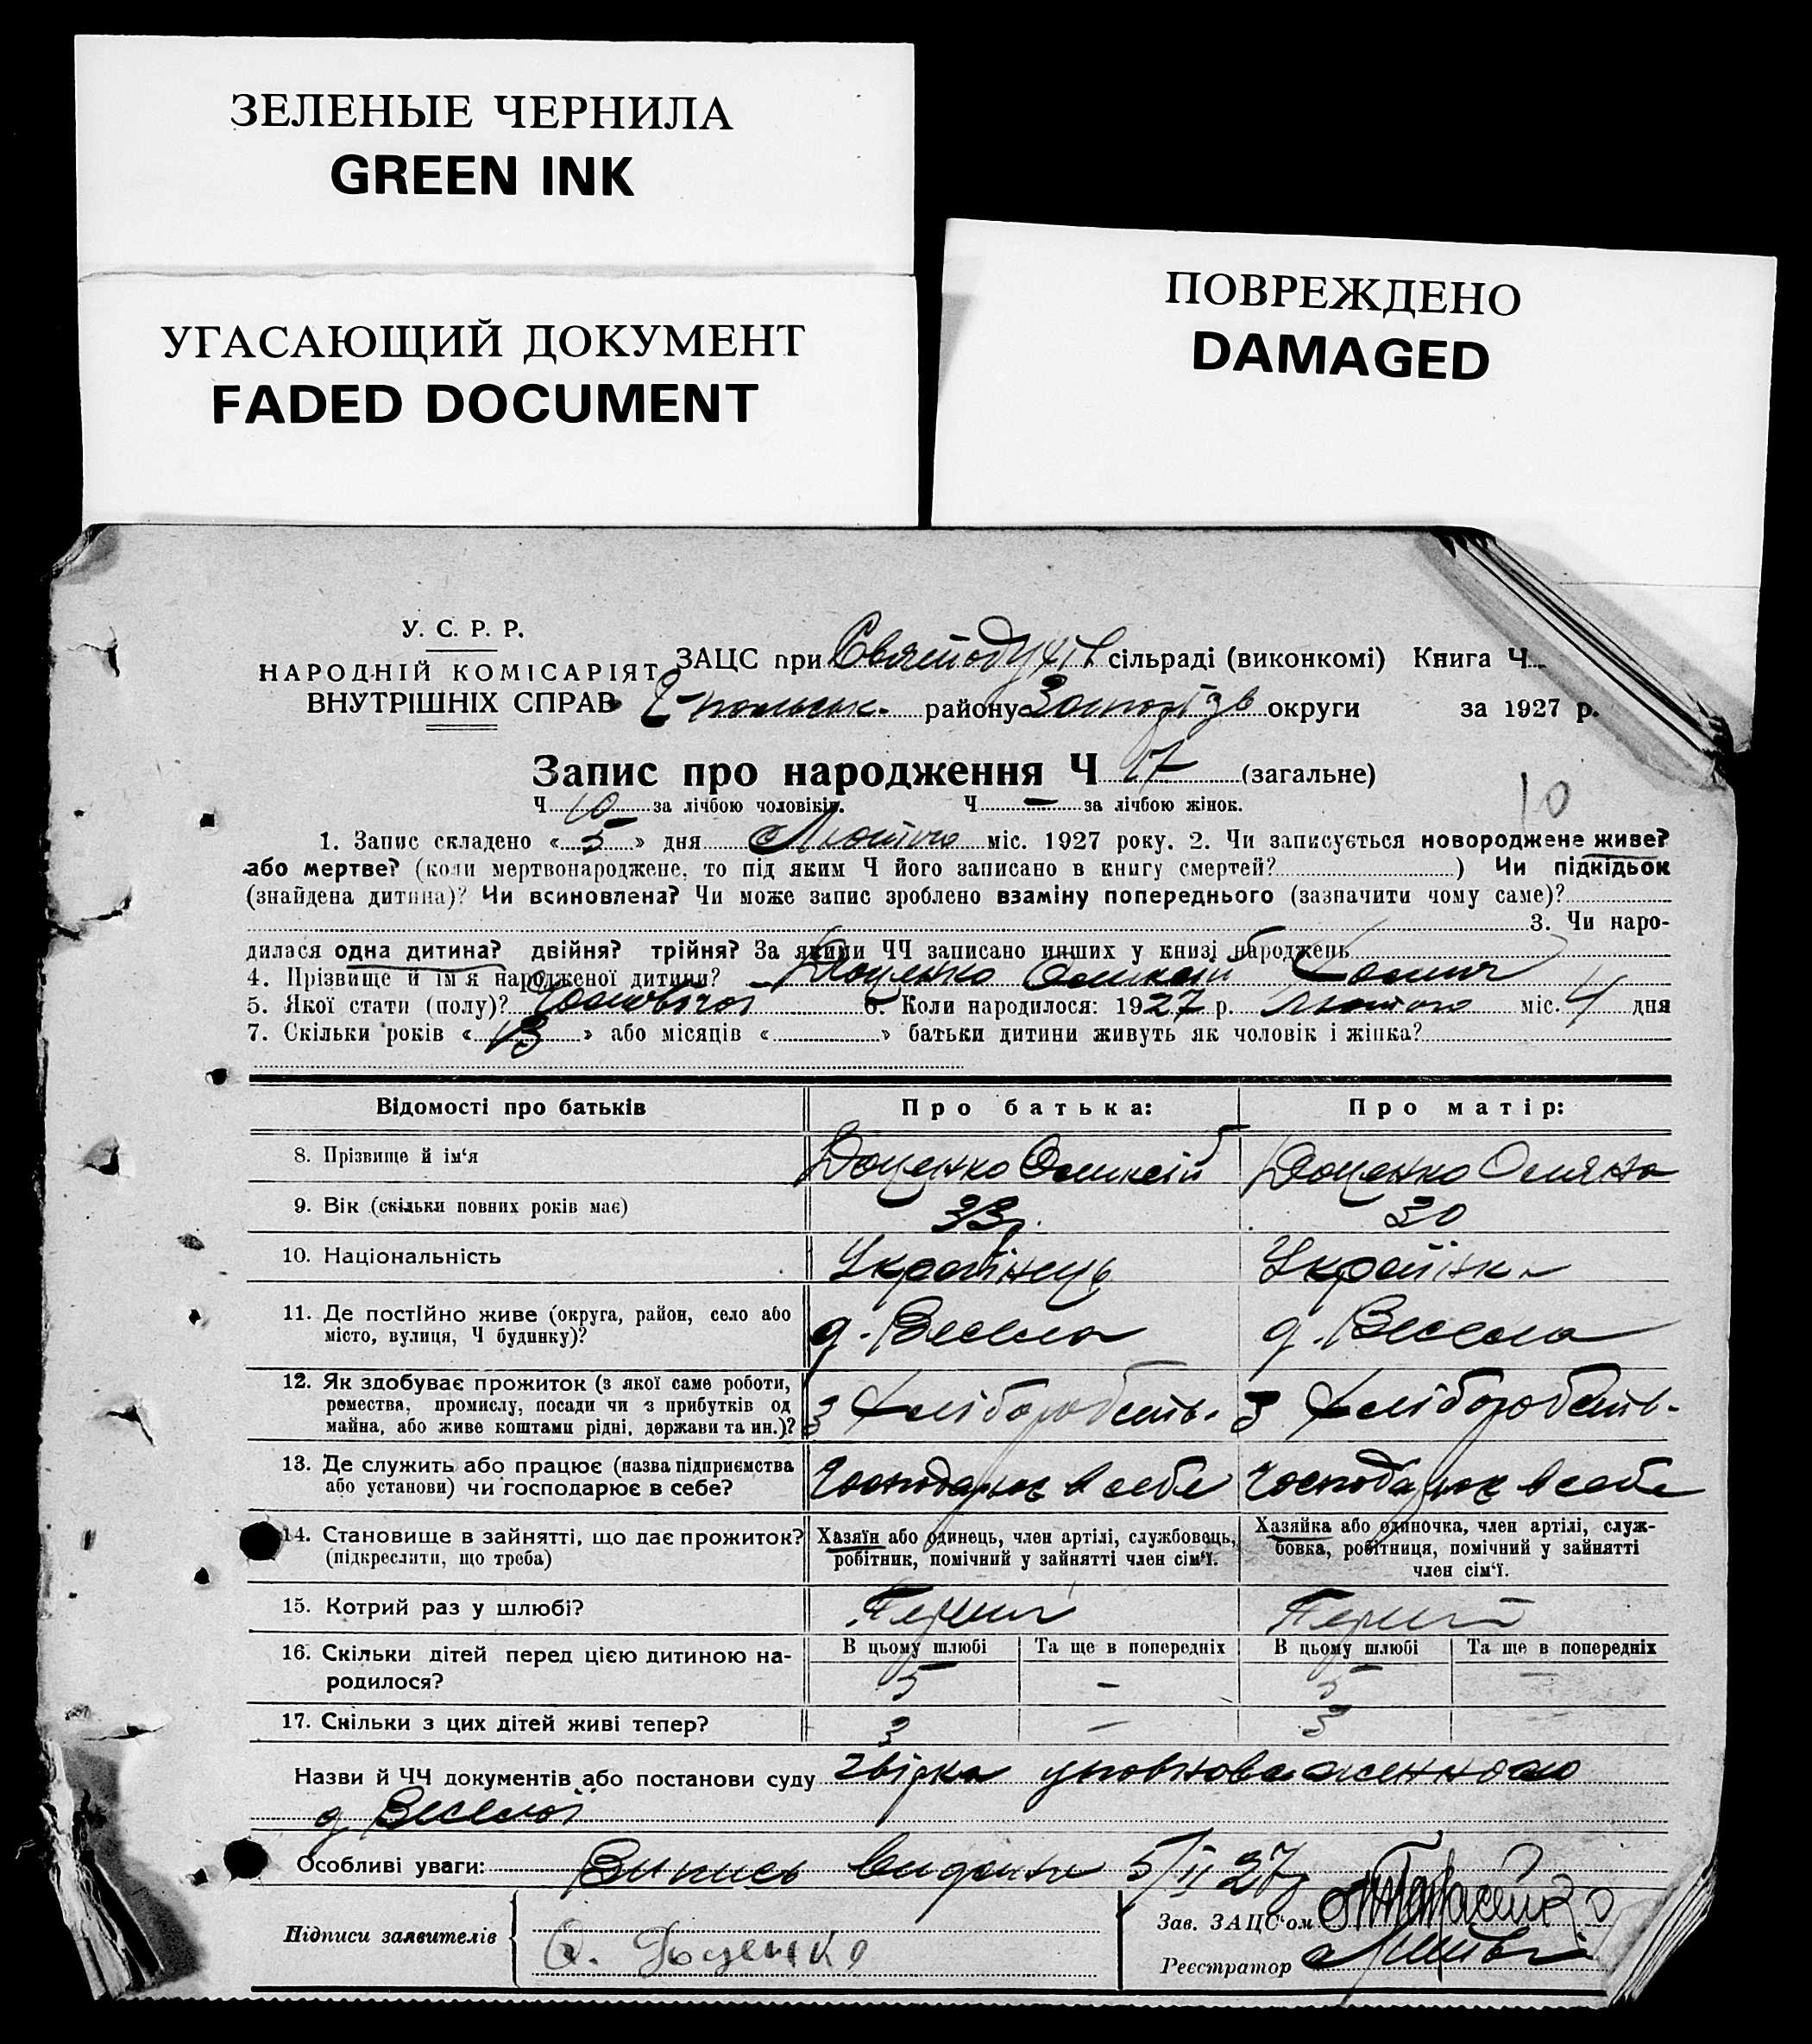 ЗЕЛЕНЫЕ ЧЕРНИЛА
GREEN INK
УГАСАЮЩИЙ ДОКУМЕНТ
FADED DOCUMENT
ПОВРЕЖДЕНО
DAMAGED
У. С. Р. Р.
НАРОДНІЙ КОМІСАРІЯТ
ВНУТРІШНІХ СПРАВ
ЗАЦС при сільраді (виконкомі) Книга Ч
району округи за 1927 р.
Запис про народження Ч 17 (загальне)
Ч 10 за лічбою чоловіків. Ч — за лічбою жінок.
10
1. Запис складено « 5 » дня Лютого міс. 1927 року. 2. Чи записується новороджене живе?
або мертве? (коли мертвонароджене, то під яким Ч його записано в книгу смертей? ) Чи підкідьок
(знайдена дитина)? Чи всиновлена? Чи може запис зроблено взаміну попереднього (зазначити чому саме)?
3. Чи наро-
дилася одна дитина? двійня? трійня? За якими ЧЧ записано инших у книзі народжень
4. Прізвище й ім'я народженої дитини? Доценко
5. Якої стати (полу)? Чоловічої 6. Коли народилося: 1927 р. Лютого міс. 4 дня
7. Скільки років « 13 » або місяців « » батьки дитини живуть як чоловік і жінка?
Відомості про батьків Про батька: Про матір:
8. Прізвище й ім'я Доценко Олексій Доценко
9. Вік (скільки повних років має) 33 р. 30
10. Національність Українець Українка
11. Де постійно живе (округа, район, село або
місто, вулиця, Ч будинку)? д. Весела д. Весела
12. Як здобуває прожиток (з якої саме роботи,
ремества, промислу, посади чи з прибутків од
майна, або живе коштами рідні, держави та ин.)? З Хліборобств. З Хліборобств.
13. Де служить або працює (назва підприємства
або установи) чи господарює в себе? Господарює в себе Господарює в себе
14. Становище в зайнятті, що дає прожиток?
(підкреслити, що треба)
Хазяїн або одинець, член артілі, службовець,
робітник, помічний у зайнятті член сім'ї.
Хазяйка або одиночка, член артілі, служ-
бовка, робітниця, помічний у зайнятті
член сім'ї.
15. Котрий раз у шлюбі? Перший Перший
16. Скільки дітей перед цією дитиною на-
родилося?
В цьому шлюбі Та ще в попередніх В цьому шлюбі Та ще в попередніх
5 — 5 —
17. Скільки з цих дітей живі тепер? 3 — 3
Назви й ЧЧ документів або постанови суду Звірка уповноваженного
д Веселої
Особливі уваги: Випись видана 5/II 27 р
Підписи заявителів
О. Доценко
Зав. ЗАЦС'ом
Реєстратор